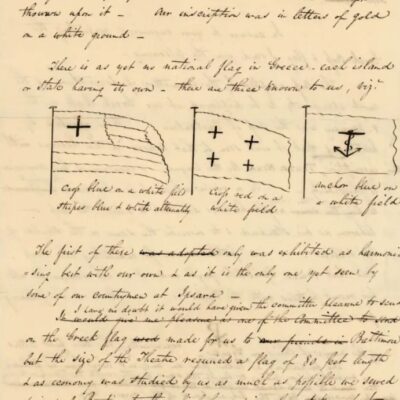 thrown upon it — Our inscription was in letters of gold
on a white ground —
There is as yet no national flag in Greece - each island
or State having its own - there are three known to us, viz.
cross blue on a white field
stripes blue & white alternately
cross red on a
white field
anchor blue on
a white field
The first of these was adopted only was exhibited as harmoni
=sing best with our own & as it is the only one yet seen by
some of our countrymen at Ipsara —
I have no doubt it would have given the committee pleasure to send
It would give me pleasure as one of the Committee to send
on the Greek flag used made for us to our friends in Baltimore
but the size of the Theatre required a flag of 80 feet length
& as economy was studied by us as much as possible we sewed